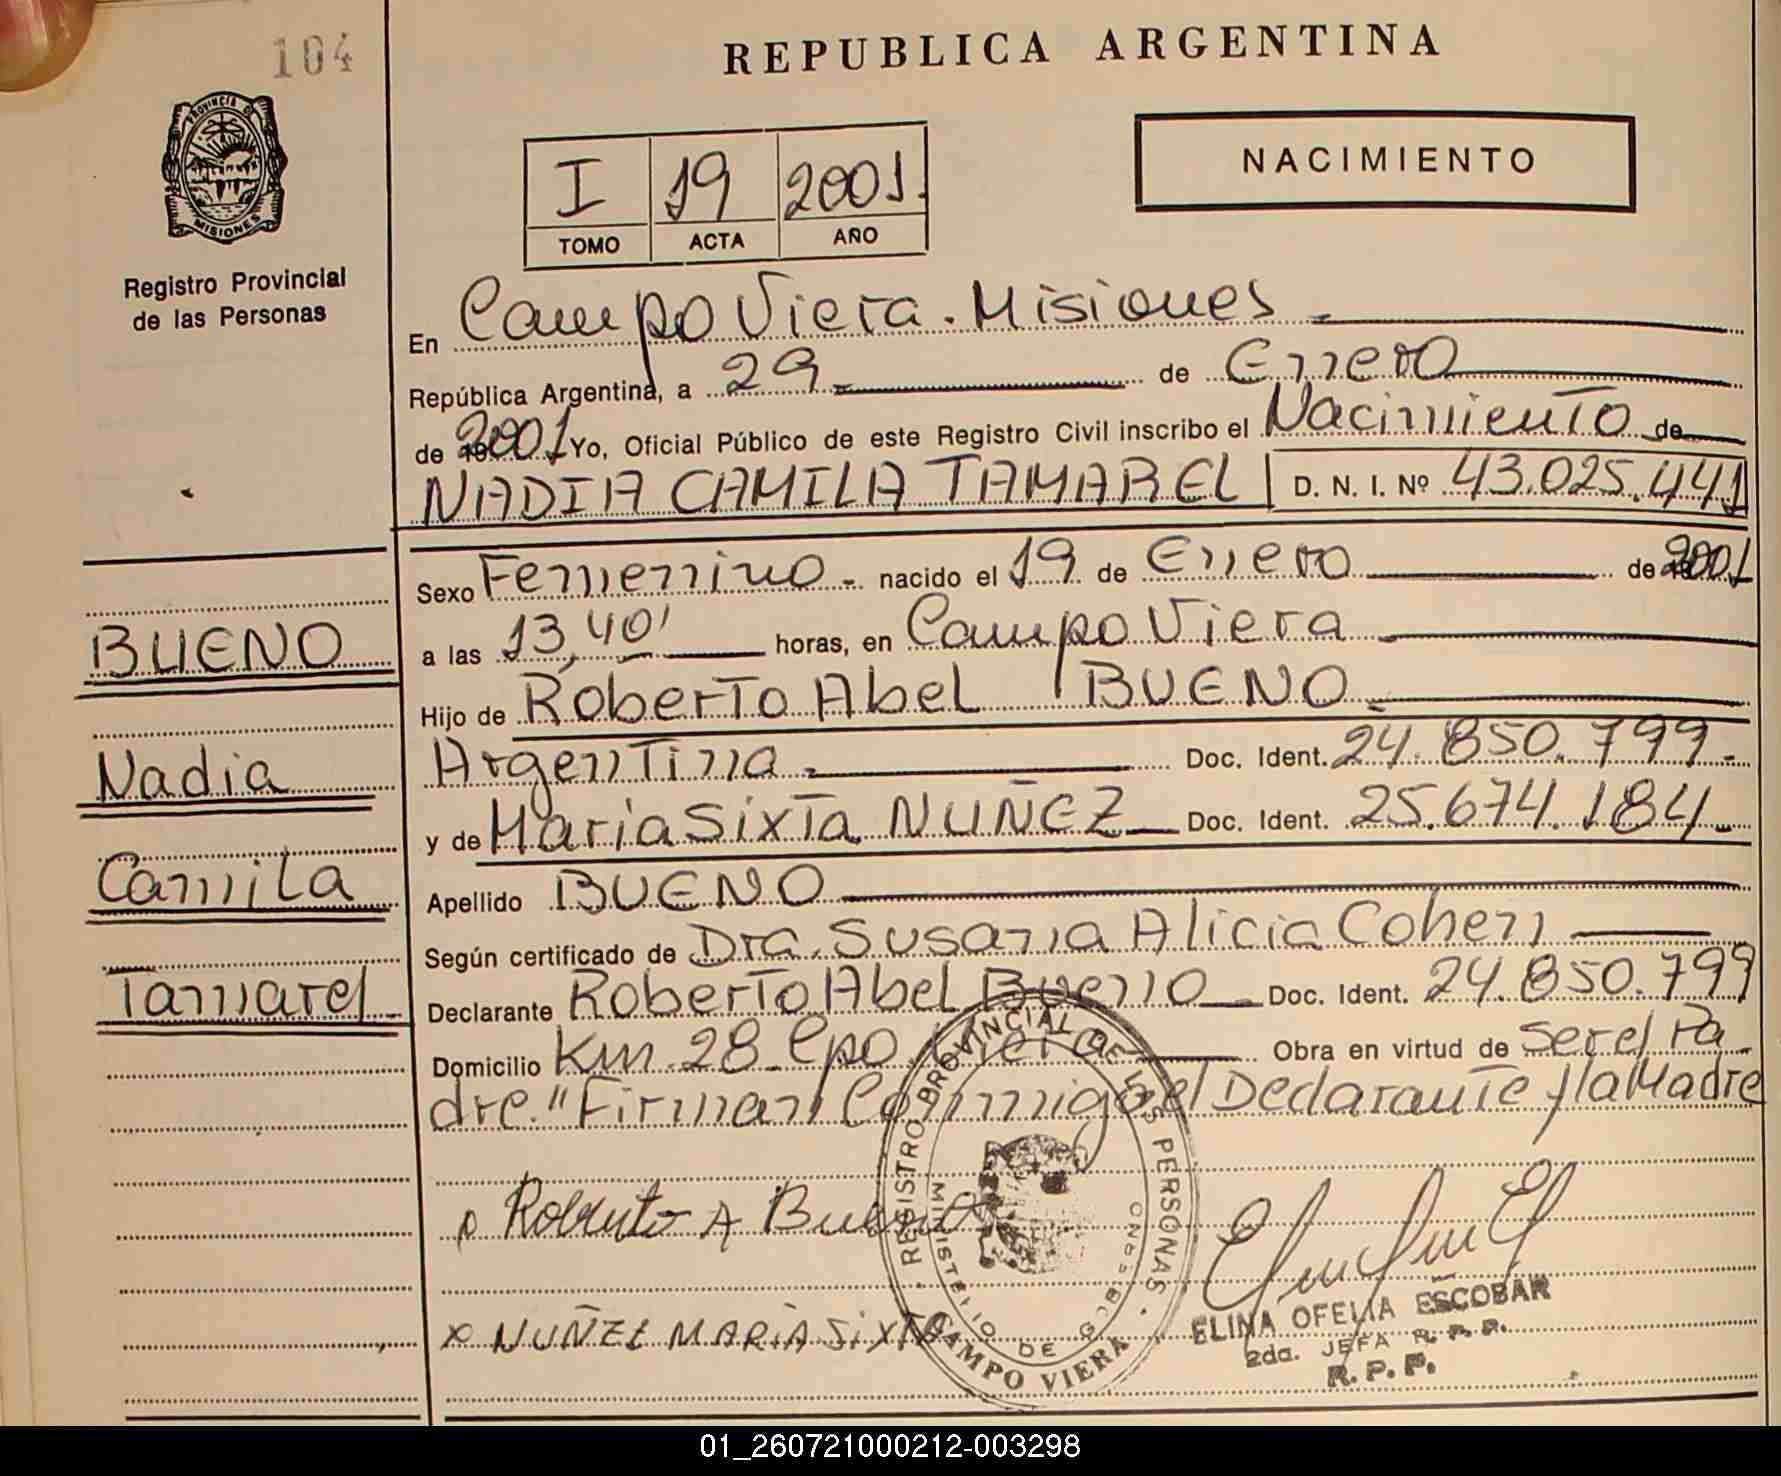 104
REPUBLICA ARGENTINA
PROVINCIA DE MISIONES
Registro Provincial
de las Personas
I 19 2001.
TOMO ACTA AÑO
NACIMIENTO
En Campo Viera. Misiones.
República Argentina, a 29. de Enero
de 2001 Yo, Oficial Público de este Registro Civil inscribo el Nacimiento de
NADIA CAMILA TAMAREL D. N. I. Nº 43.025.441
Sexo Femenino. nacido el 19 de Enero de 2001
a las 13,40' horas, en Campo Viera
Hijo de Roberto Abel BUENO.
Argentina. Doc. Ident. 24.850.799.
y de Maria Sixta NUÑEZ Doc. Ident. 25.674.184.
Apellido BUENO
Según certificado de Dra. Susana Alicia Cohen
Declarante Roberto Abel Bueno Doc. Ident. 24.850.799
Domicilio Km. 28 Cpo Viera Obra en virtud de ser el Pa
dre." Firman Conmigo el Declarante y la Madre
BUENO
Nadia
Camila
Tamarel
Roberto A Bueno
x NUÑEZ MARIA SIXTA
REGISTRO PROVINCIAL DE LAS PERSONAS
MINISTERIO DE GOBIERNO
CAMPO VIERA
ELINA OFELIA ESCOBAR
2da. JEFA R. P. P.
R. P. P.
01_260721000212-003298